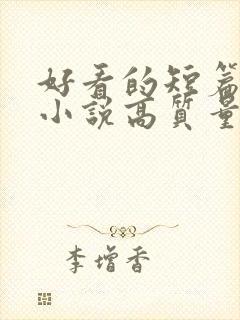 好看的短篇
小说高质量
李增香